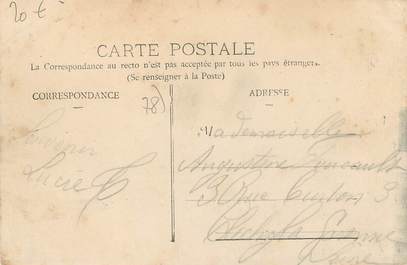 20 €
CARTE POSTALE
La Correspondance au recto n'est pas acceptée par tous les pays étrangers
(Se renseigner à la Poste)
CORRESPONDANCE
78)
ADRESSE
Souvenir
Lucie
Mademoiselle
Augustine
3 Rue